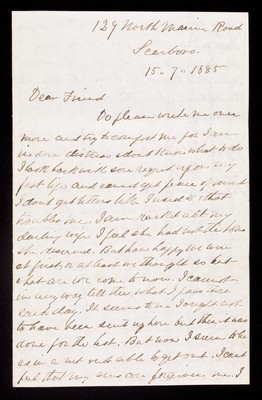 129 North Marine Road
Scarboro.
15. 7. 1885
Dear Friend
Do please write me once
more and try to comfort me for I am
in sore distress & dont know what to do
I look back with sore regret upon my
past life and cannot get peace of mind
I dont get letters like I used to & that
troubles me. I am racked abt my
darling wife I feel she had not the love
she deserved. But how happy we were
at first, or at least we thought so but
what are we come to now. I cannot
in any way tell thee what I pass thro
each day. It seems to me I ought not
to have been sent up here but this was
done for the best. But now I seem to be
as in a net & not able to get out. I cant
feel that my sins are forgiven me. I